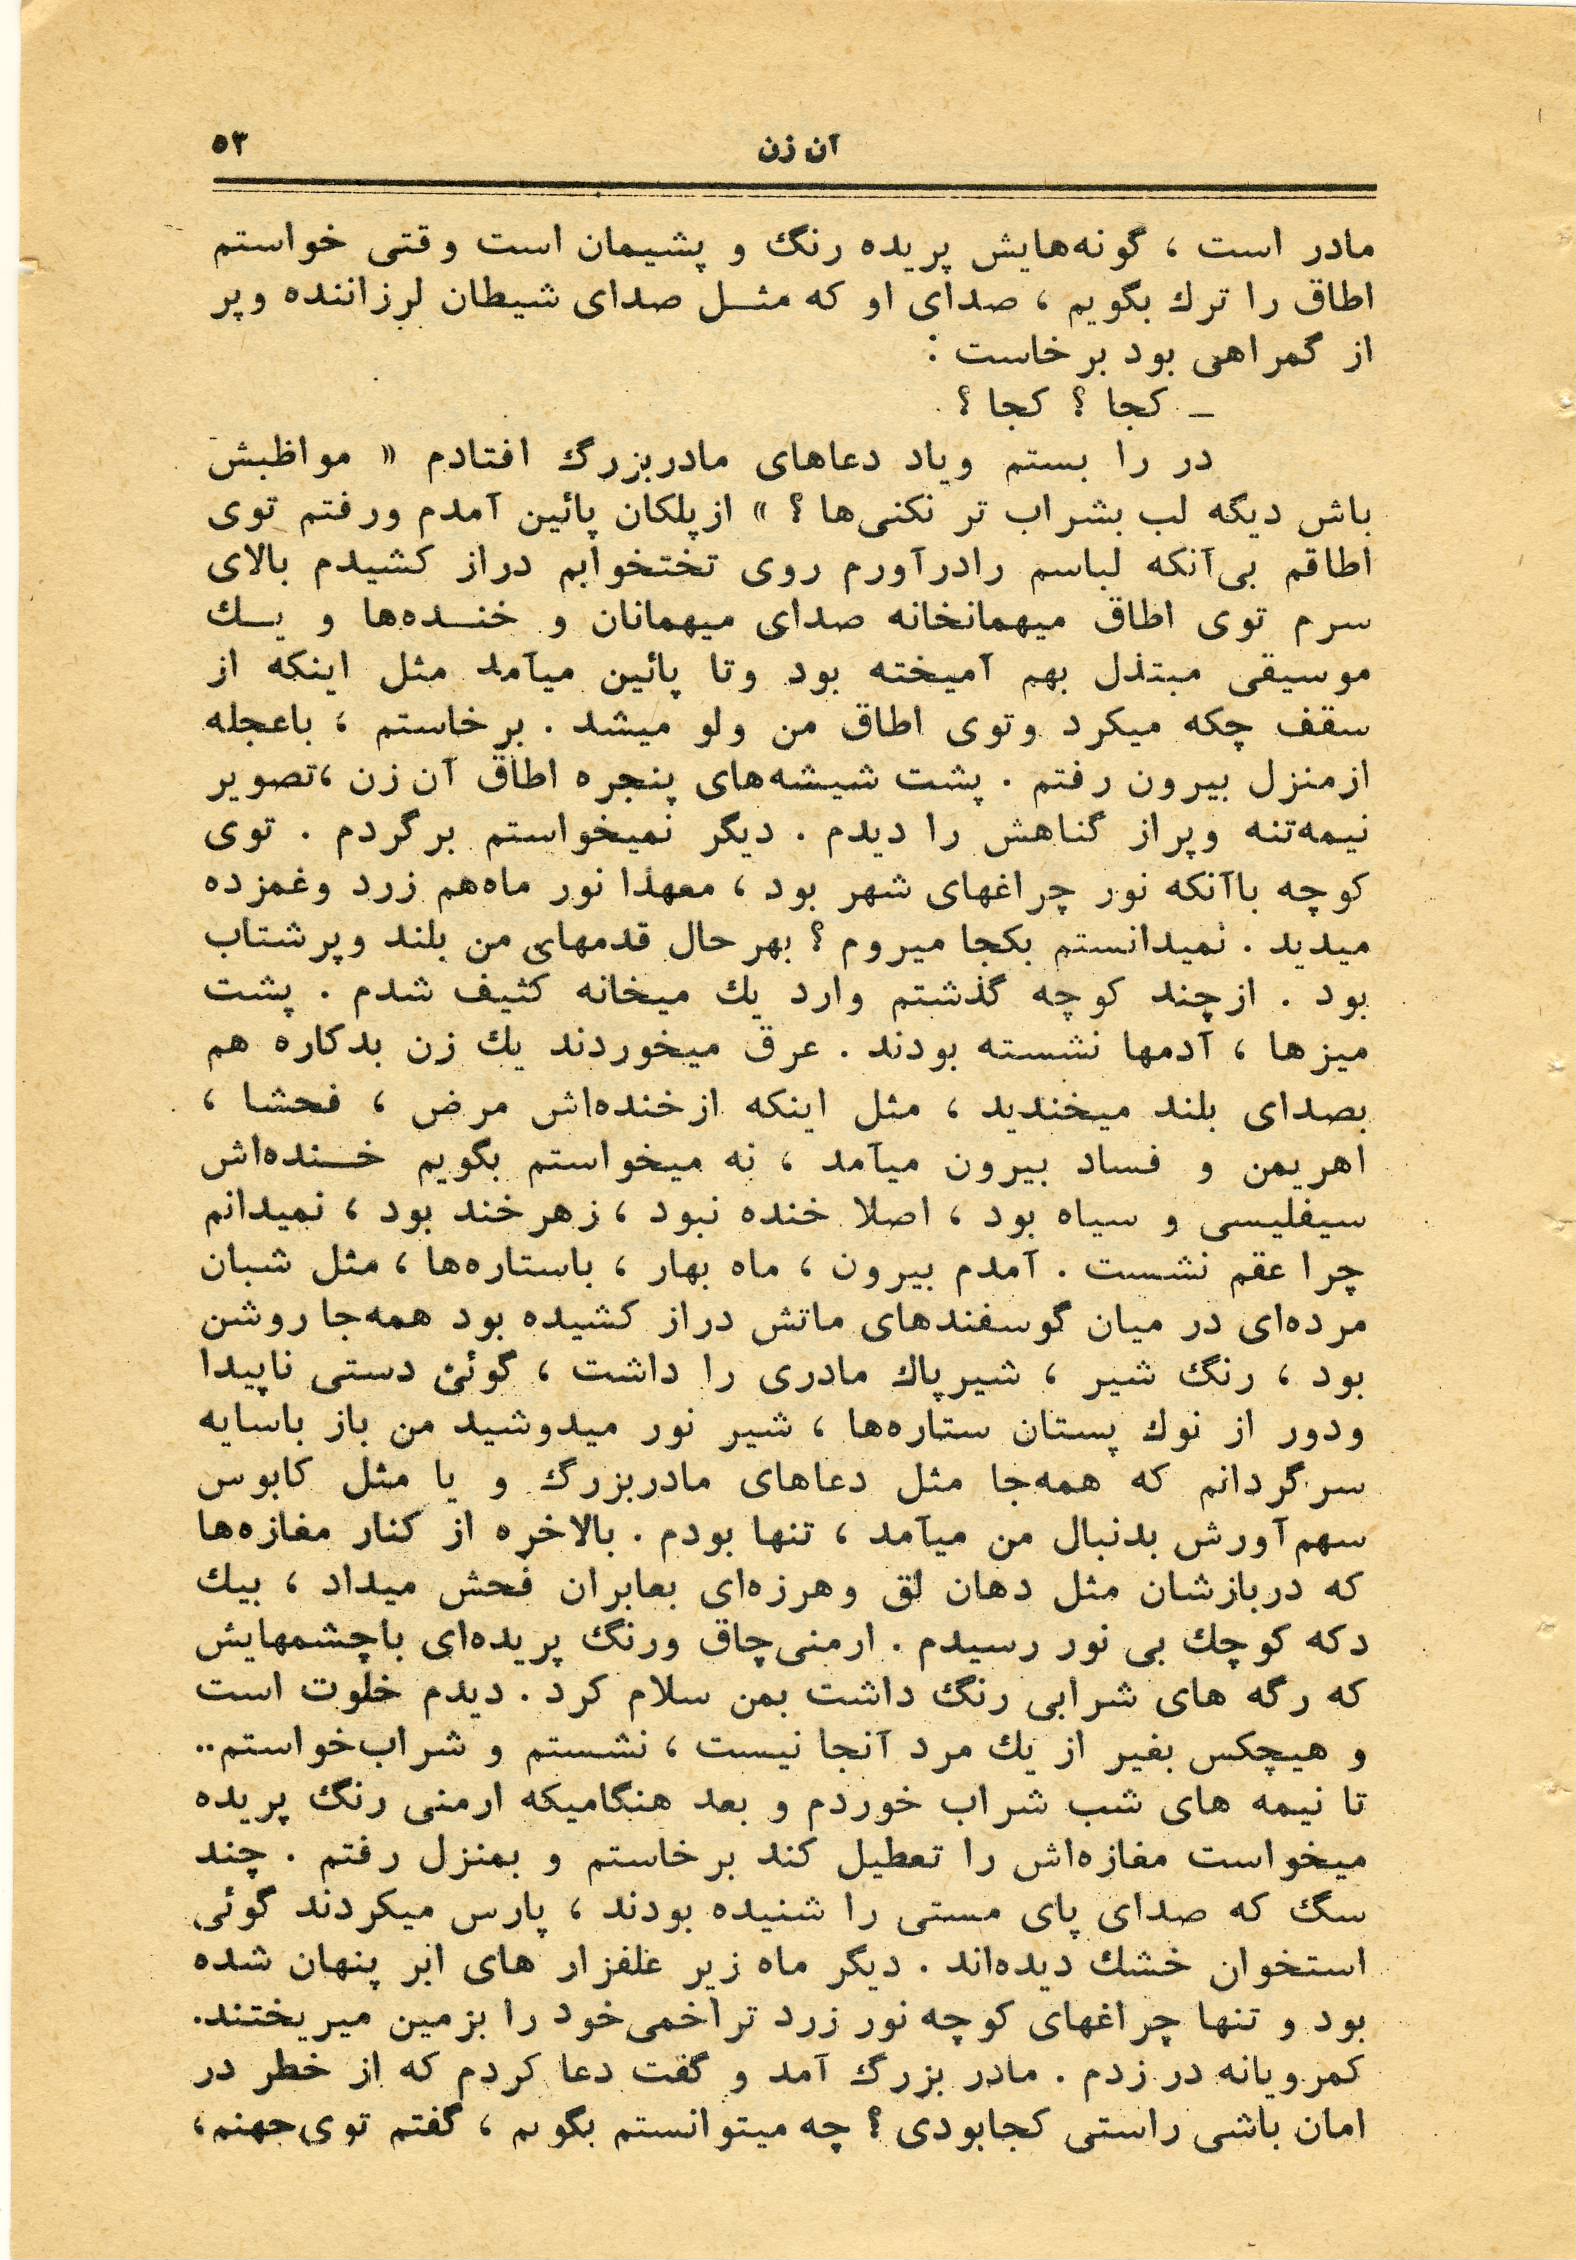 آن زن ۵۳
مادر است ، گونه‌هایش پریده رنگ و پشیمان است وقتی خواستم
اطاق را ترك بگویم ، صدای او که مثــل صدای شیطان لرزاننده وپر
از گمراهی بود برخاست :
ـ کجا ؟ کجا ؟
در را بستم ویاد دعاهای مادربزرگ افتادم « مواظبش
باش دیگه لب بشراب تر نکنی‌ها ؟ » ازپلکان پائین آمدم ورفتم توی
اطاقم بی‌آنکه لباسم رادرآورم روی تختخوابم دراز کشیدم بالای
سرم توی اطاق میهمانخانه صدای میهمانان و خنـــده‌ها و یــك
موسیقی مبتذل بهم آمیخته بود وتا پائین میآمد مثل اینکه از
سقف چکه میکرد وتوی اطاق من ولو میشد . برخاستم ، باعجله
ازمنزل بیرون رفتم . پشت شیشه‌های پنجره اطاق آن زن ،تصویر
نیمه‌تنه وپراز گناهش را دیدم . دیگر نمیخواستم برگردم . توی
کوچه باآنکه نور چراغهای شهر بود ، معهذا نور ماه‌هم زرد وغمزده
میدید . نمیدانستم بکجا میروم ؟ بهرحال قدمهای من بلند وپرشتاب
بود . ازچند کوچه گذشتم وارد یك میخانه کثیف شدم . پشت
میزها ، آدمها نشسته بودند . عرق میخوردند یك زن بدکاره هم
بصدای بلند میخندید ، مثل اینکه ازخنده‌اش مرض ، فحشا ،
اهریمن و فساد بیرون میآمد ، نه میخواستم بگویم خـــنده‌اش
سیفلیسی و سیاه بود ، اصلا خنده نبود ، زهرخند بود ، نمیدانم
چرا عقم نشست . آمدم بیرون ، ماه بهار ، باستاره‌ها ، مثل شبان
مرده‌ای در میان گوسفندهای ماتش دراز کشیده بود همه‌جا روشن
بود ، رنگ شیر ، شیرپاك مادری را داشت ، گوئی دستی ناپیدا
ودور از نوك پستان ستاره‌ها ، شیر نور میدوشید من باز باسایه
سرگردانم که همه‌جا مثل دعاهای مادربزرگ و یا مثل کابوس
سهم‌آورش بدنبال من میآمد ، تنها بودم . بالاخره از کنار مغازه‌ها
که دربازشان مثل دهان لق وهرزه‌ای بعابران فحش میداد ، بیك
دکه کوچك بی نور رسیدم . ارمنی‌چاق ورنگ پریده‌ای باچشمهایش
که رگه های شرابی رنگ داشت بمن سلام کرد . دیدم خلوت است
و هیچکس بغیر از یك مرد آنجا نیست ، نشستم و شراب‌خواستم..
تا نیمه های شب شراب خوردم و بعد هنگامیکه ارمنی رنگ پریده
میخواست مغازه‌اش را تعطیل کند برخاستم و بمنزل رفتم . چند
سگ که صدای پای مستی را شنیده بودند ، پارس میکردند گوئی
استخوان خشك دیده‌اند . دیگر ماه زیر علفزار های ابر پنهان شده
بود و تنها چراغهای کوچه نور زرد تراخمی‌خود را بزمین میریختند.
کمرویانه در زدم . مادر بزرگ آمد و گفت دعا کردم که از خطر در
امان باشی راستی کجابودی ؟ چه میتوانستم بگویم ، گفتم توی‌جهنم،